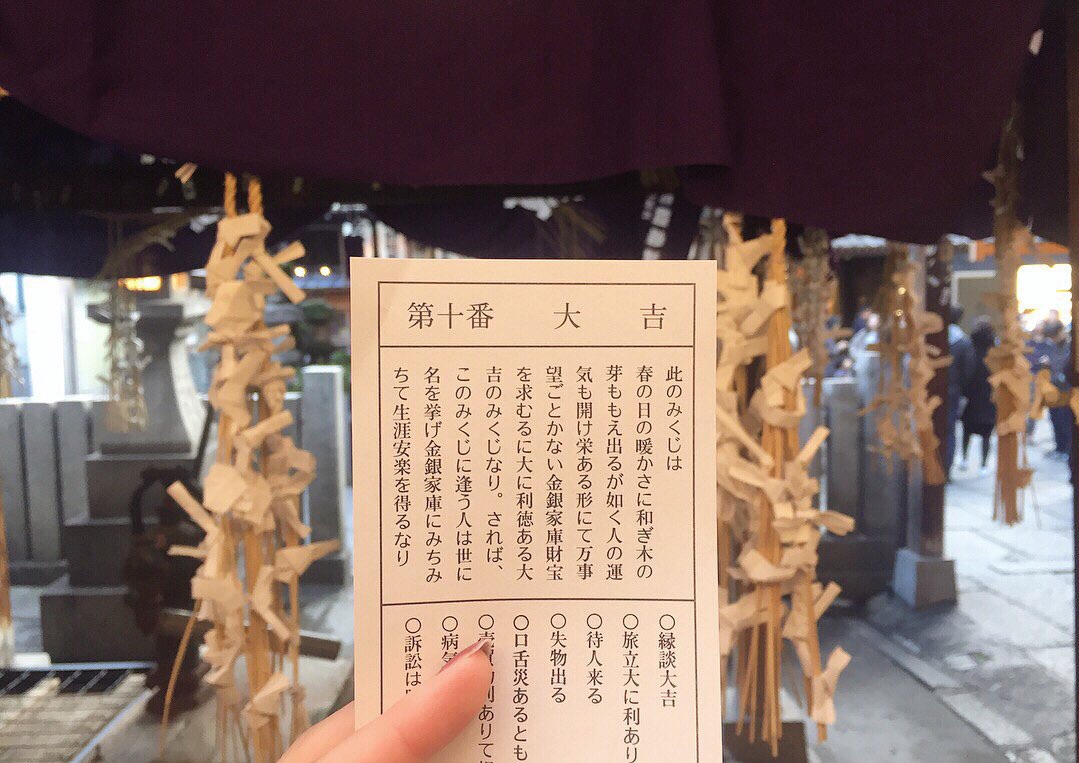 第十番 大 吉
此のみくじは
春の日の暖かさに和ぎ木の
芽ももえ出るが如く人の運
気も開け栄ある形にて万事
望ごとかない金銀家庫財宝
を求むるに大に利徳ある大
吉のみくじなり。されば、
このみくじに逢う人は世に
名を挙げ金銀家庫にみちみ
ちて生涯安楽を得るなり
〇縁談大吉
〇旅立大に利あり
〇待人来る
〇失物出る
〇口舌災あるとも
〇利ありて
〇病気
〇訴訟は